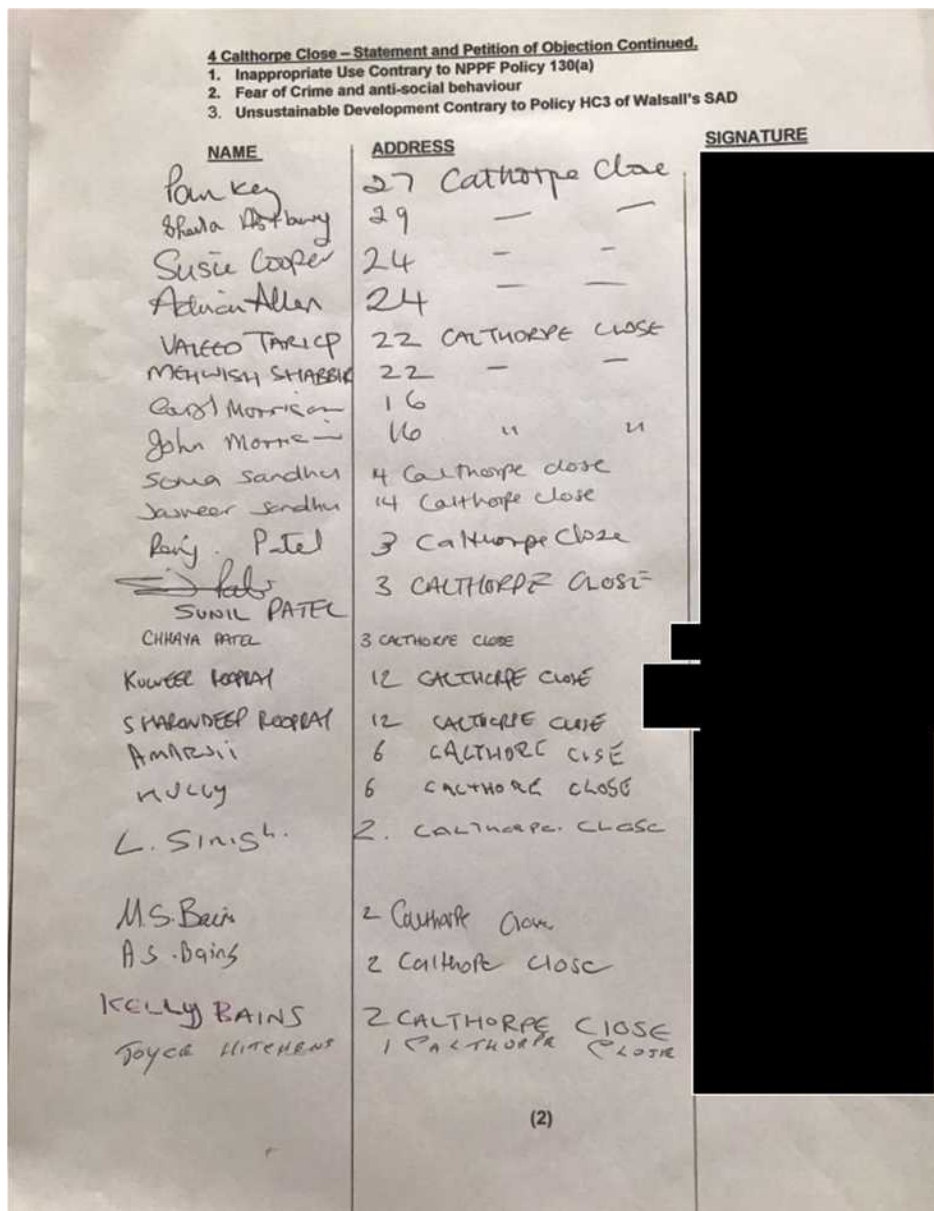 4 Calthorpe Close – Statement and Petition of Objection Continued.
1. Inappropriate Use Contrary to NPPF Policy 130(a)
2. Fear of Crime and anti-social behaviour
3. Unsustainable Development Contrary to Policy HC3 of Walsall's SAD
NAME ADDRESS SIGNATURE
Key 27 Cathorpe Close
Sheila 29 — —
Susie Cooper 24 – –
Adrian Allen 24 — —
TARICP 22 CALTHORPE CLOSE
MEHWISH SHABBIR 22 – –
Carol Morrison 16
John 16 " "
Sandhu 4 Calthorpe close
Jasveer Sandhu 14 Calthorpe close
Patel 3 Calthorpe Close
3 CALTHORPE CLOSE
SUNIL PATEL
CHHAYA PATEL 3 CALTHORPE CLOSE
ROOPRAY 12 CALTHORPE CLOSE
SHARONDEEP ROOPRAY 12 CALTHORPE CLOSE
6 CALTHORE CLSE
6 CALTHORE CLOSE
L. Sinigh. 2. CALTHORPE. CLOSE
M.S. Bains 2 Close
A.S. Bains 2 Calthope Close
KELLY BAINS 2 CALTHORPE CLOSE
Joyce HITCHENS 1 CALTHORPE CLOSE
(2)